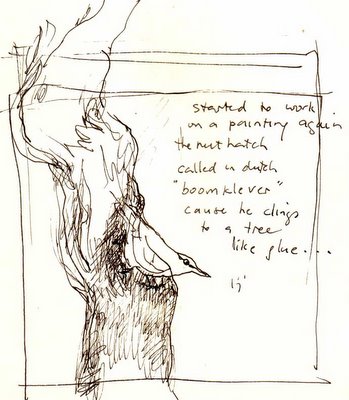 started to work
on a painting again
the nuthatch
called in dutch
"boomklever"
cause he clings
to a tree
like glue....